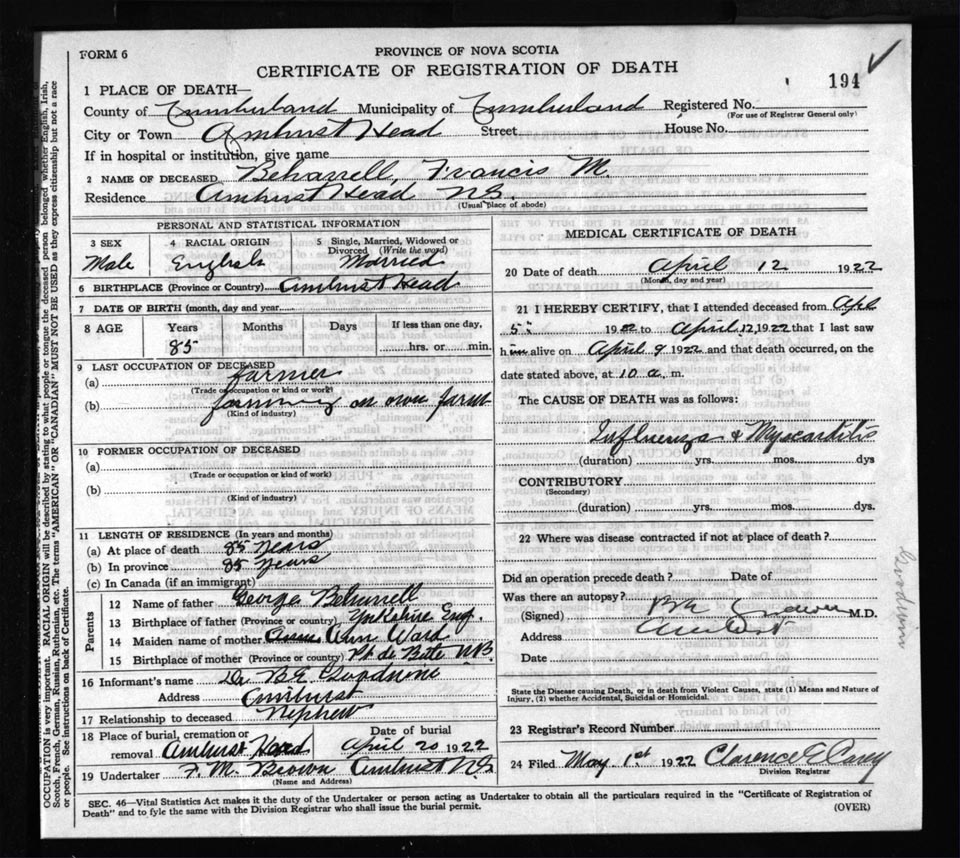 FORM 6
PROVINCE OF NOVA SCOTIA
CERTIFICATE OF REGISTRATION OF DEATH
194 ✓
1 PLACE OF DEATH—
County of Cumberland Municipality of Cumberland Registered No.
(For use of Registrar General only)
City or Town Amherst Head Street House No.
If in hospital or institution, give name
2 NAME OF DECEASED Beharrell, Francis M
Residence Amherst Head N.S.
(Usual place of abode)
PERSONAL AND STATISTICAL INFORMATION
3 SEX 4 RACIAL ORIGIN 5 Single, Married, Widowed or Divorced (Write the word)
Male English Married
6 BIRTHPLACE (Province or Country) Amherst Head
7 DATE OF BIRTH (month, day and year)
8 AGE Years Months Days If less than one day,
85 hrs. or min.
9 LAST OCCUPATION OF DECEASED
(a) farmer
(Trade or occupation or kind or work)
(b) farming on own farm
(Kind of industry)
10 FORMER OCCUPATION OF DECEASED
(a)
(Trade or occupation or kind of work)
(b)
(Kind of industry)
11 LENGTH OF RESIDENCE (In years and months)
(a) At place of death 85 years
(b) In province 85 years
(c) In Canada (if an immigrant)
Parents
12 Name of father George Beharrell
13 Birthplace of father (Province or country) Yorkshire Eng.
14 Maiden name of mother Ann Ward
15 Birthplace of mother (Province or country) Pt de Bute NB
16 Informant's name Dr B.E. Goodwine
Address Amherst
17 Relationship to deceased Nephew
18 Place of burial, cremation or Date of burial
removal Amherst Head April 20 1922
19 Undertaker F. M. Brown Amherst NS
(Name and Address)
MEDICAL CERTIFICATE OF DEATH
20 Date of death April 12 1922
(Month, day and year)
21 I HEREBY CERTIFY, that I attended deceased from Apl
5 1922 to April 12, 1922 that I last saw
him alive on April 9 1922 and that death occurred, on the
date stated above, at 10 a. m.
The CAUSE OF DEATH was as follows:
Influenza & Myocarditis
(duration) yrs. mos. dys
CONTRIBUTORY
(Secondary)
(duration) yrs. mos. dys.
22 Where was disease contracted if not at place of death?
Did an operation precede death? Date of
Was there an autopsy?
(Signed) M.D.
Address Amherst
Date
State the Disease causing Death, or in death from Violent Causes, state (1) Means and Nature of
Injury, (2) whether Accidental, Suicidal or Homicidal.
23 Registrar's Record Number
24 Filed May 1st 1922 Clarence E Carey
Division Registrar
SEC. 46—Vital Statistics Act makes it the duty of the Undertaker or person acting as Undertaker to obtain all the particulars required in the "Certificate of Registration of
Death" and to fyle the same with the Division Registrar who shall issue the burial permit.
(OVER)
OCCUPATION is very important. RACIAL ORIGIN will be described by stating to what people or tongue the deceased person belonged whether English, Irish,
Scotch, French, German, Russian, Ruthenian, etc. The terms "AMERICAN" OR "CANADIAN" MUST NOT BE USED as they express citizenship but not a race
or people. See instructions on back of Certificate.